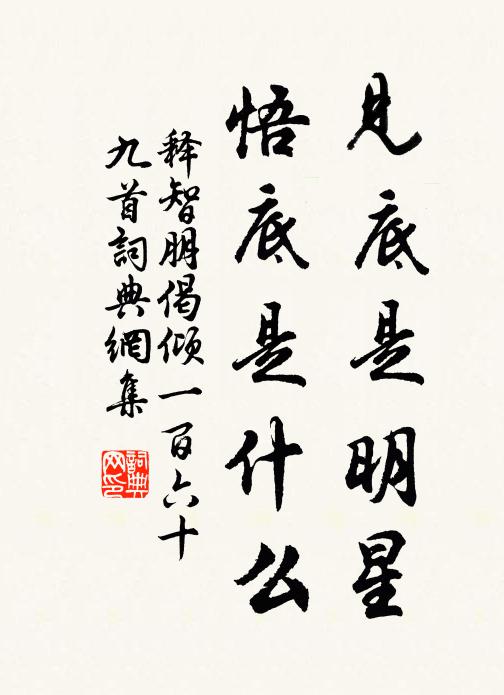 见底是明星
悟底是什么
释智朋偈倾一百六十
九首詞典網集
詞典网印